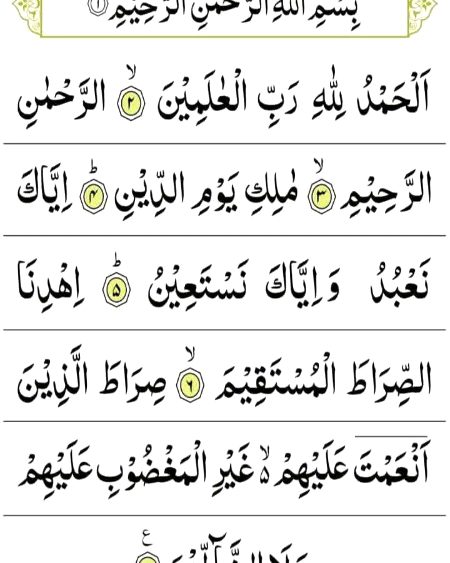 بِسْمِ اللهِ الرَّحْمٰنِ الرَّحِيْمِ ۝۱
اَلْحَمْدُ لِلّٰهِ رَبِّ الْعٰلَمِيْنَ ۙ‏۝۲ الرَّحْمٰنِ
الرَّحِيْمِ ۙ‏۝۳ مٰلِكِ يَوْمِ الدِّيْنِ ؕ‏۝۴ اِيَّاكَ
نَعْبُدُ وَاِيَّاكَ نَسْتَعِيْنُ ؕ‏۝۵ اِهْدِنَا
الصِّرَاطَ الْمُسْتَقِيْمَ ۙ‏۝۶ صِرَاطَ الَّذِيْنَ
اَنْعَمْتَ عَلَيْهِمْ ۙ۵ غَيْرِ الْمَغْضُوْبِ عَلَيْهِمْ
وَلَا الضَّآلِّيْنَ ع